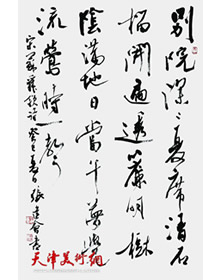 別院深〻夏席清石
榴開遍透簾明樹
陰滿地日當午夢覺
流鶯時一聲
宋蘇舜欽詩癸巳夏日張建會書
天津美術網